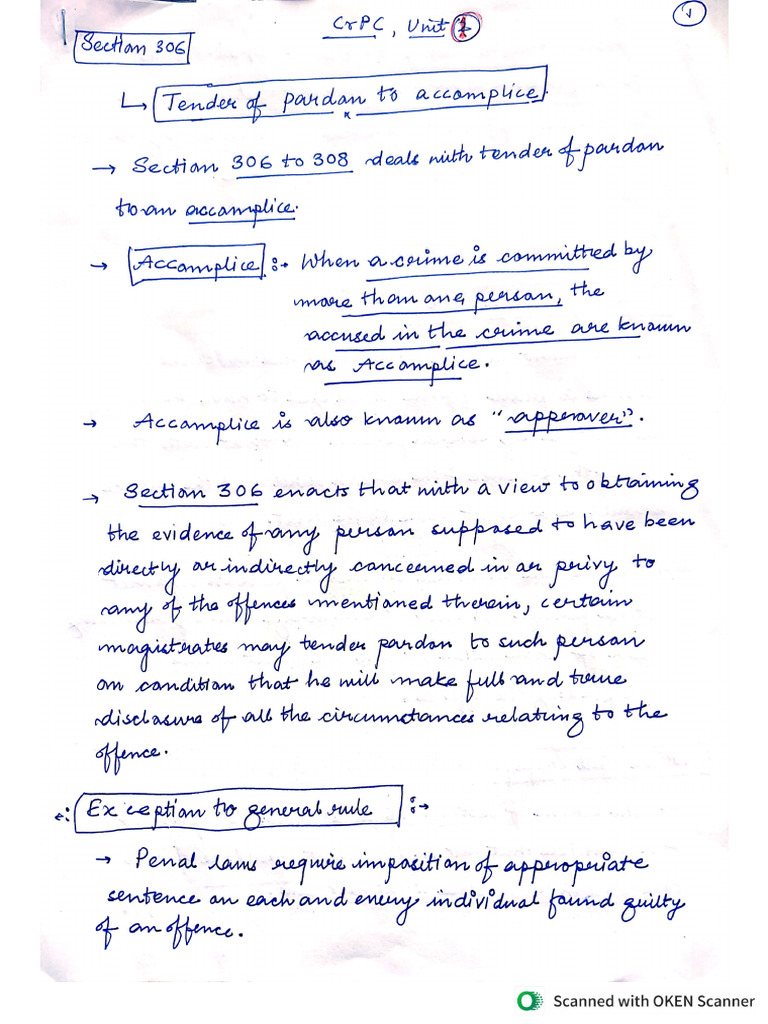 CrPC, Unit 2
1
Section 306
↳ Tender of pardon to accomplice
→ Section 306 to 308 deals with tender of pardon
to an accomplice.
→ Accomplice :- When a crime is committed by
more than one person, the
accused in the crime are known
as Accomplice.
→ Accomplice is also known as "approver".
→ Section 306 enacts that with a view to obtaining
the evidence of any person supposed to have been
directly or indirectly concerned in or privy to
any of the offences mentioned therein, certain
magistrates may tender pardon to such person
on condition that he will make full and true
disclosure of all the circumstances relating to the
offence.
Exception to general rule :→
→ Penal laws require imposition of appropriate
sentence on each and every individual found guilty
of an offence.
Scanned with OKEN Scanner